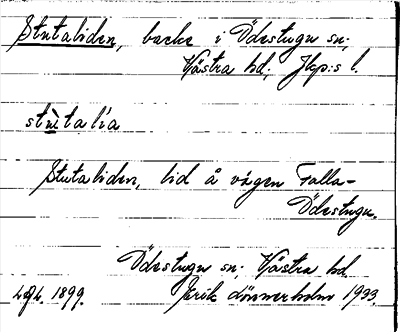 Stutaliden, backe i Ödestugu sn;
Västra hd; Jkp:s l.
stùtalía
Stutaliden, lid å vägen Falla-
Ödestugu.
Ödestugu sn. Västra hd.
1899. Erik Lönnerholm 1933.